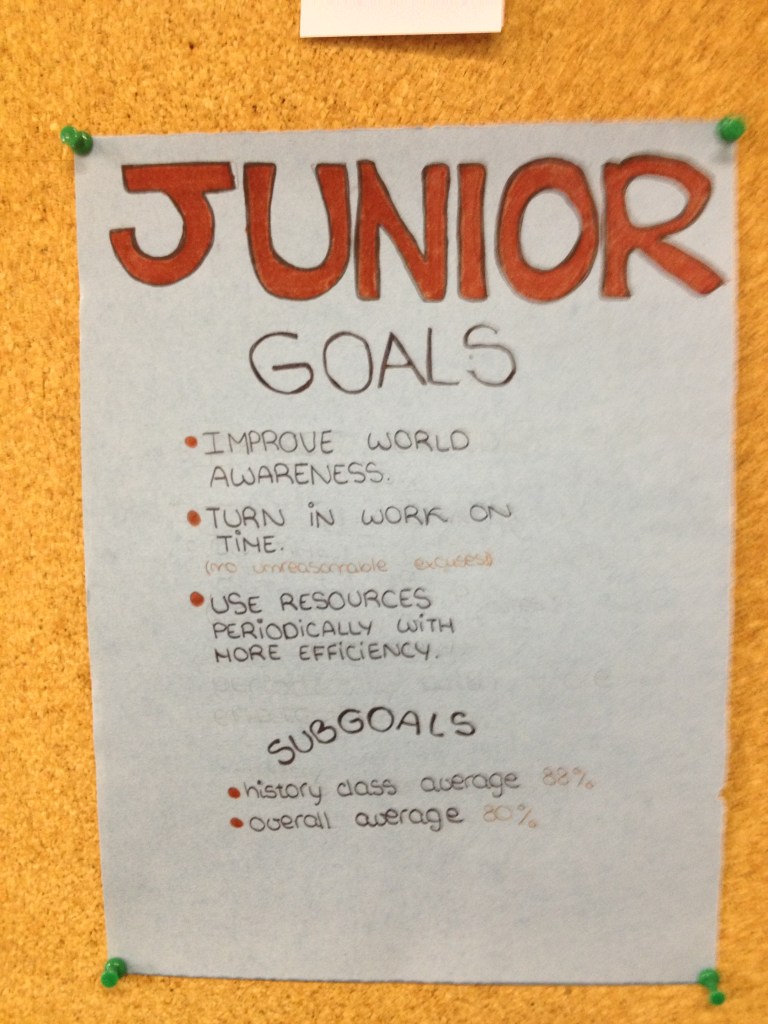 JUNIOR
GOALS
• IMPROVE WORLD
AWARENESS.
• TURN iN WORK ON
TiME.
(no unreasonable excuses!)
• USE RESOURCES
PERiODiCALLY WiTH
MORE EFFiCiENCY.
SUBGOALS
• history class average 88%
• overall average 80%